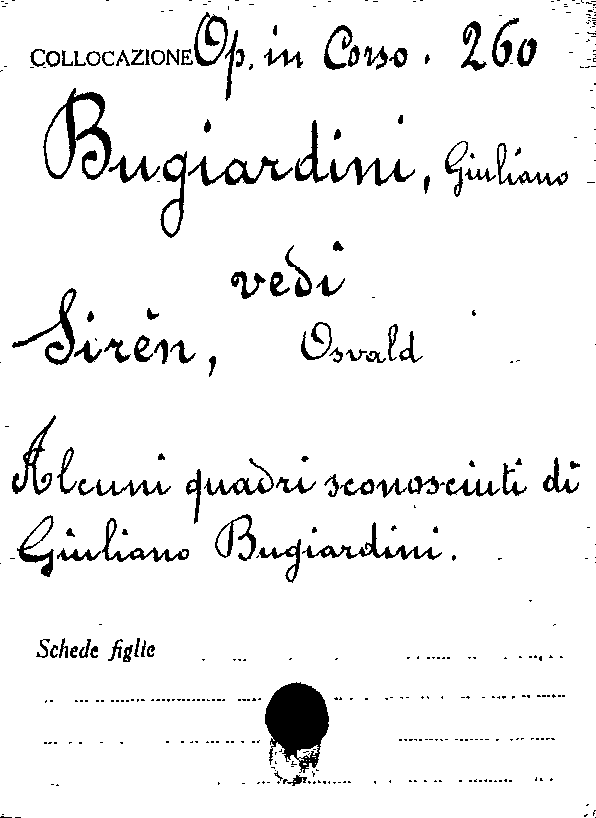 COLLOCAZIONE Op. in Corso. 260
Bugiardini, Giuliano
vedi
Sirèn, Osvald
Alcuni quadri sconosciuti di
Giuliano Bugiardini.
Schede figlie